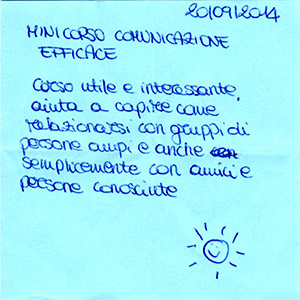 20/09/2014
MINICORSO COMUNICAZIONE
EFFICACE
corso utile e interessante,
aiuta a capire come
relazionarsi con gruppi di
persone ampi e anche
semplicemente con amici e
persone conosciute